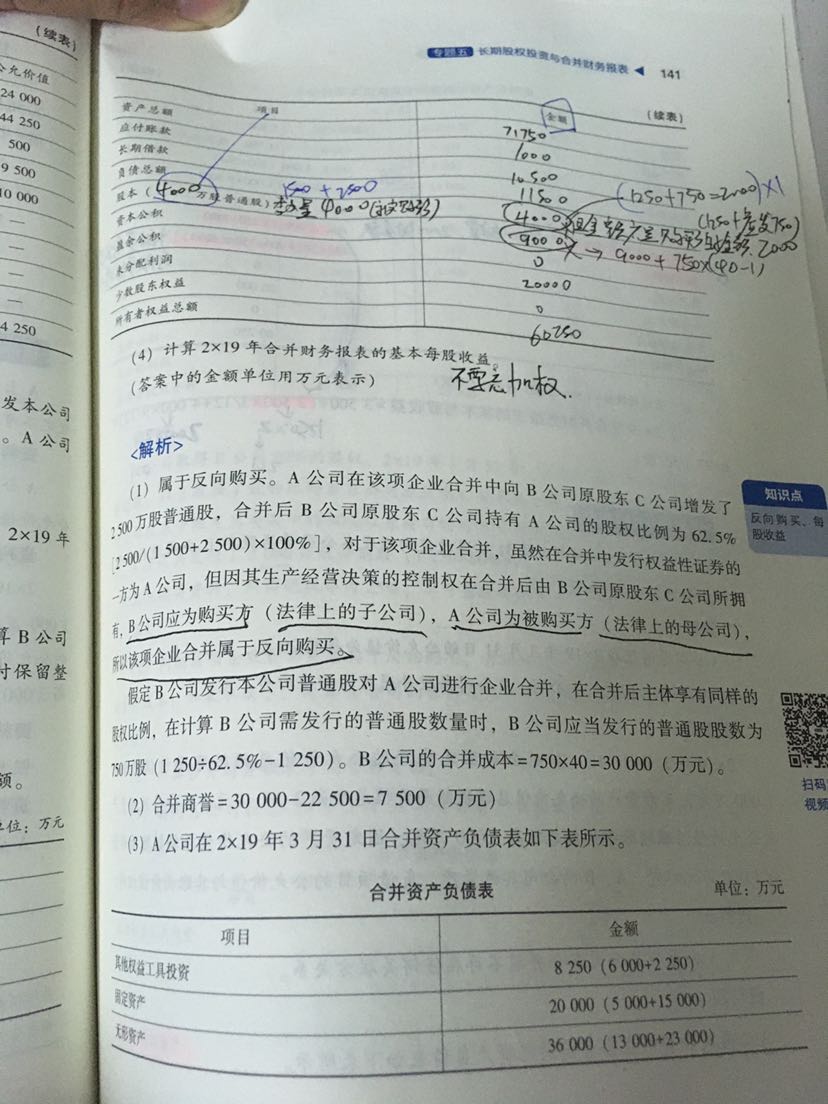 (续表)
公允价值
24 000
44 250
500
9 500
10 000
—
—
—
4 250
发本公司
。A 公司
2×19 年
算 B 公司
付保留整
额。
单位：万元
专题五 长期股权投资与合并财务报表 ◀ 141
(续表)
项目 金额
资产总额 71750
应付账款 1000
长期借款 10500
负债总额 11500
1500 + 2500
(1250+750=2000)×1
股本（4000万股普通股） 4000
资本公积 9000 → 9000 + 750×(40-1)
盈余公积 0
未分配利润 20000
少数股东权益 0
所有者权益总额 60250
(4) 计算 2×19 年合并财务报表的基本每股收益。
(答案中的金额单位用万元表示) 不要忘加权.
<解析>
(1) 属于反向购买。A 公司在该项企业合并中向 B 公司原股东 C 公司增发了
2 500 万股普通股，合并后 B 公司原股东 C 公司持有 A 公司的股权比例为 62.5%
[2 500/(1 500+2 500)×100%]，对于该项企业合并，虽然在合并中发行权益性证券的
一方为 A 公司，但因其生产经营决策的控制权在合并后由 B 公司原股东 C 公司所拥
有，B 公司应为购买方（法律上的子公司），A 公司为被购买方（法律上的母公司），
所以该项企业合并属于反向购买。
假定 B 公司发行本公司普通股对 A 公司进行企业合并，在合并后主体享有同样的
股权比例，在计算 B 公司需发行的普通股数量时，B 公司应当发行的普通股股数为
750 万股（1 250÷62.5%-1 250）。B 公司的合并成本=750×40=30 000（万元）。
(2) 合并商誉=30 000-22 500=7 500（万元）
(3) A 公司在 2×19 年 3 月 31 日合并资产负债表如下表所示。
合并资产负债表 单位：万元
项目 金额
其他权益工具投资 8 250（6 000+2 250）
固定资产 20 000（5 000+15 000）
无形资产 36 000（13 000+23 000）
知识点
反向购买、每
股收益
扫码
视频